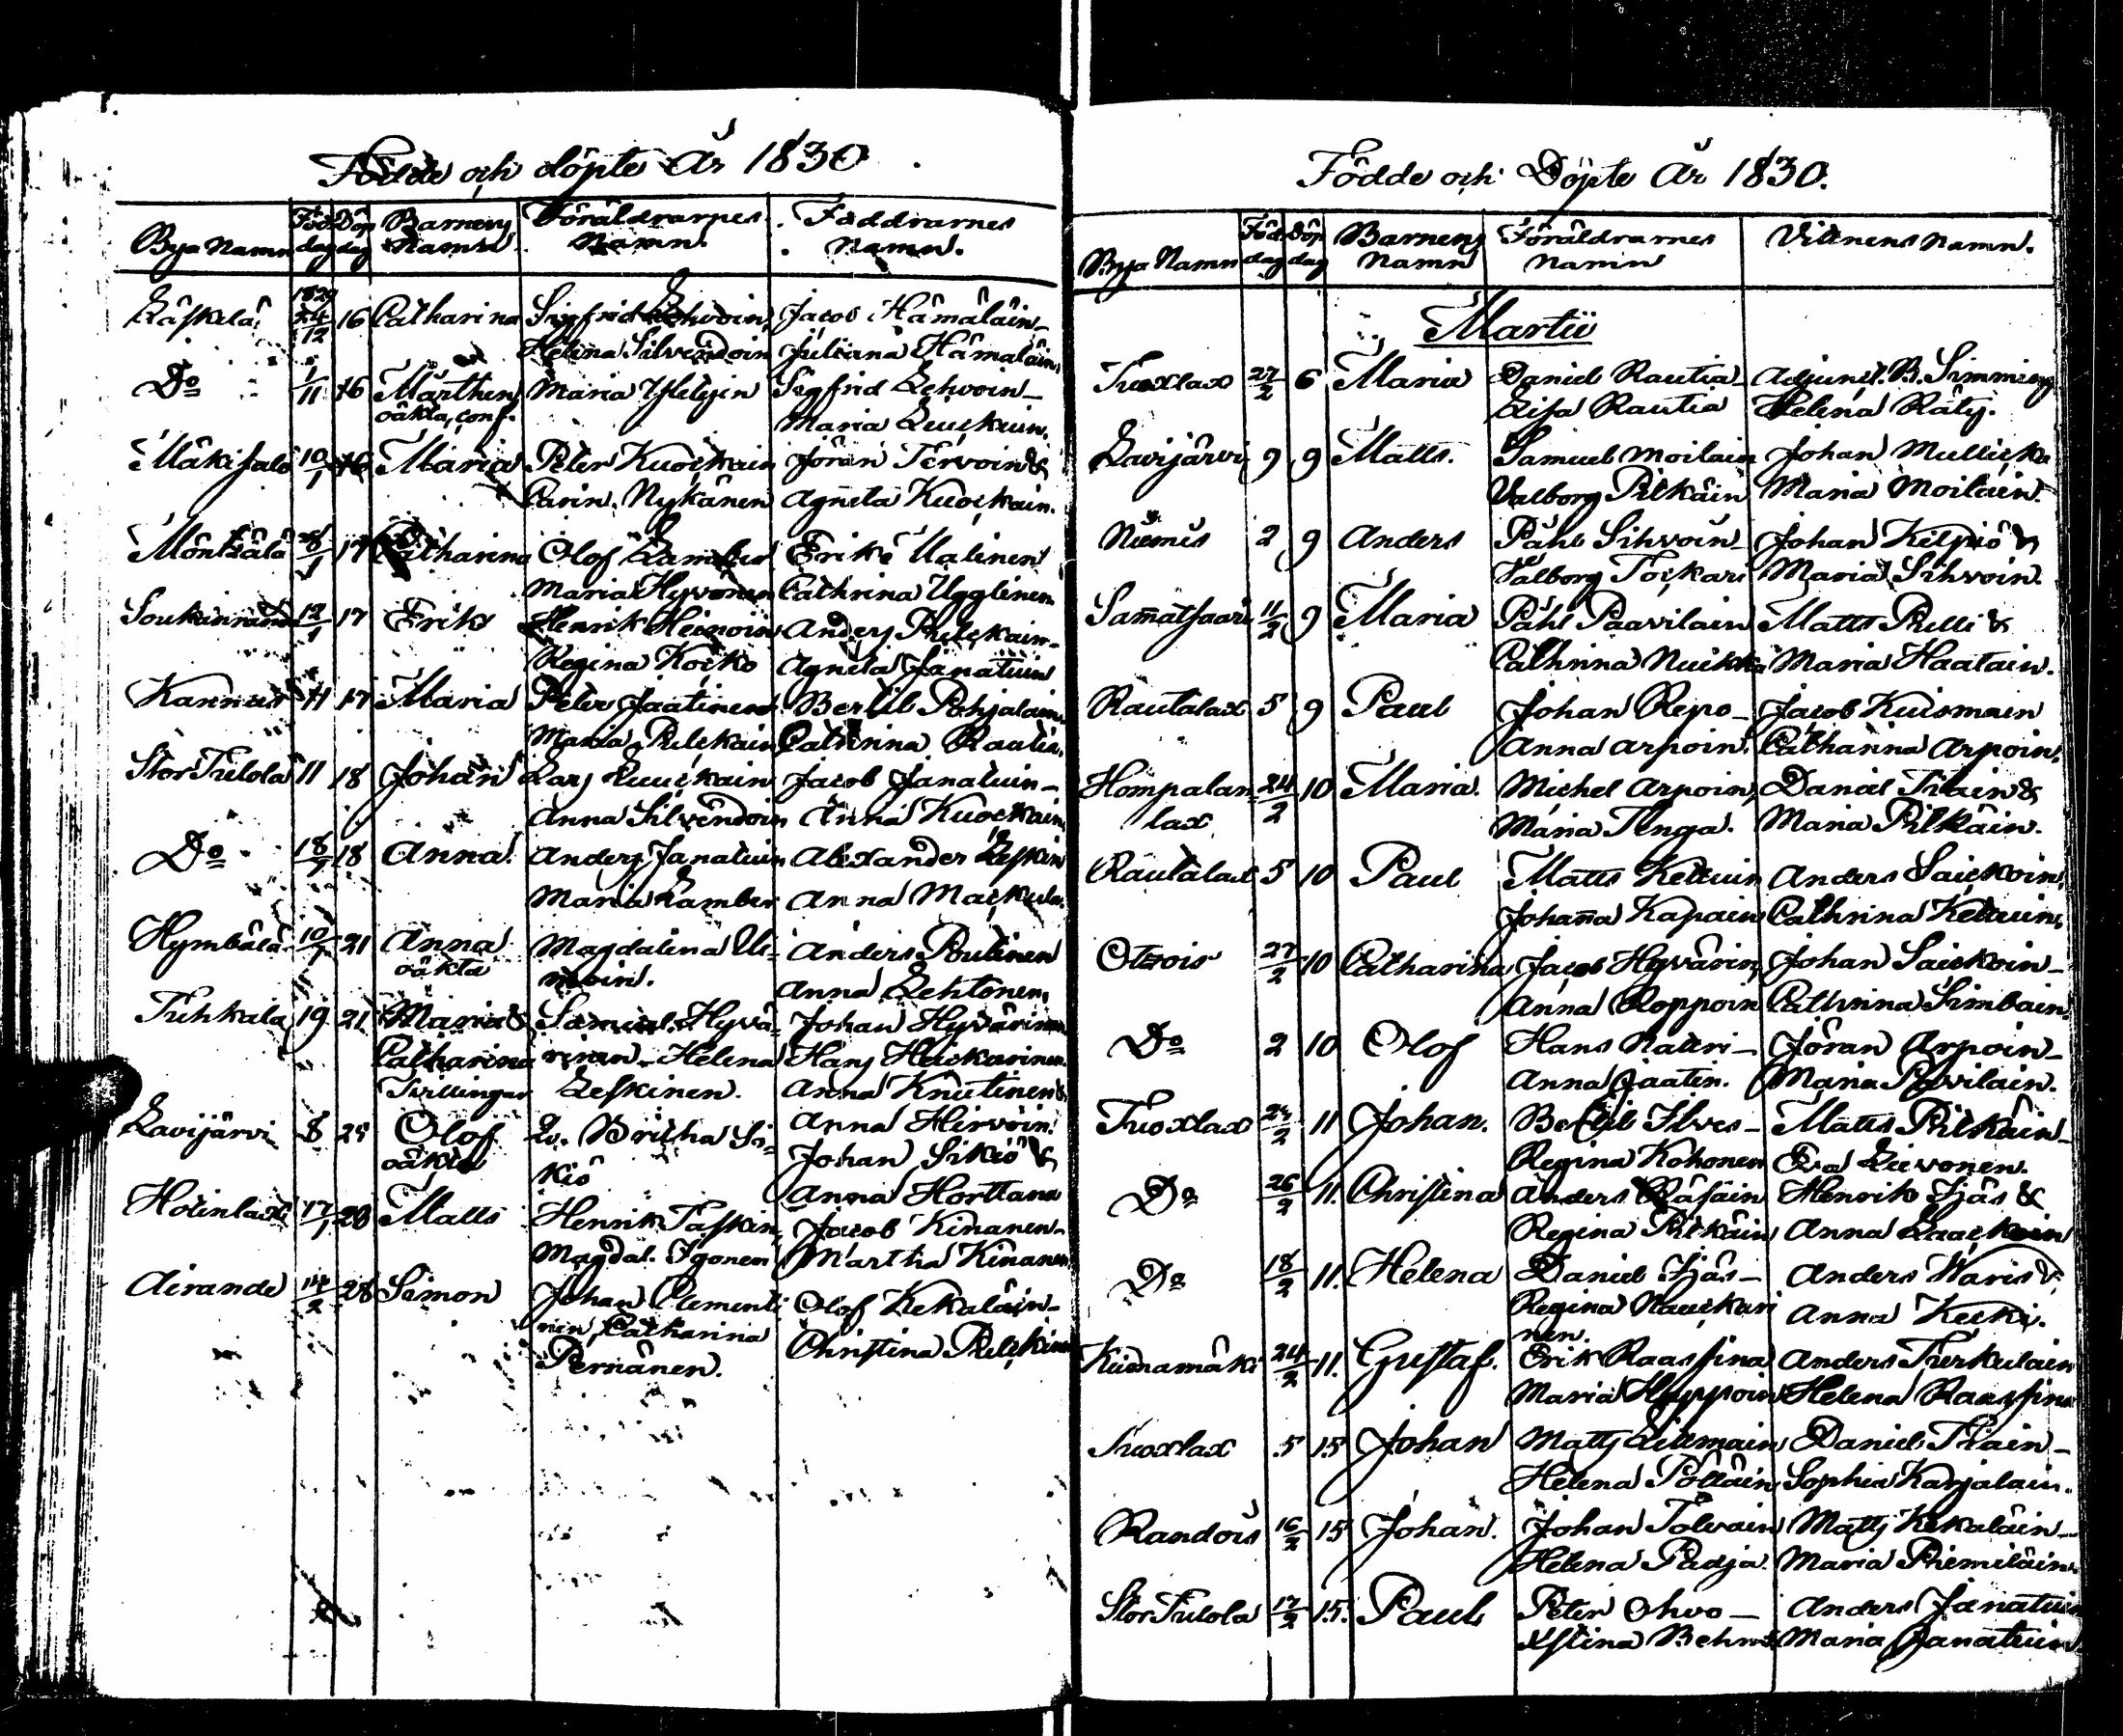 Födde och döpte År 1830
Bya Namn Föd dag Döp dag Barnens Namn Föräldrarnes Namn. Faddrarnes Namn.
1829
24/12 16 Catharina Sigfrid Lehvoin, Jacob Hämäläin-
Helena Silvendoin Juliana Hämäläin,
Do 1/11 16 Marthen Maria Sigfrid Lehvoin-
oäkta, conf. Maria
Mäkisalo 10/1 16 Maria Peter Kuockain Jöran Tervoin &
Carin. Nykänen Agneta Kuockain.
28/1 17 Catharina Olof Lamber Erik Ualinen
Maria Hyvönen Cathrina Ugglinen
12/1 17 Erik Henrik Heinoin Anders Pulckain-
Regina Kocko Agneta Janatuin
Kannas 11 17 Maria Peter Jaatinen Bertil Pohjalain,
Maria Pulckain Cathrina Rautia,
Stor Tiulola 11 18 Johan Lars Jacob Janatuin-
Anna Silvendoin Anna Kuockain,
Do 18/1 18 Anna. Anders Janatuin Alexander Leskin
Maria Lamber Anna
Hymbälä 10/1 21 Anna Magdalena Anders Poutinen
oäkta noin. Anna Lehtonen,
Tuhkala 19 21 Maria & Samuel Hyvä- Johan Hyvärinen
Catharina rinen - Helena Hans Heickarinen
Tvillingar Leskinen. Anna Knutinen &
Anna Hirvoin.
Lavijärvi 8 25 Olof Britha Si- Johan Sikiö &
oäkta kiö Anna Horttana
17/1 28 Matts Henrik Taskin, Jacob Kinanen-
Magdal. Igonen Martha Kinanen
Airande 14/2 28 Simon Johan Clementi Olof Kekäläin-
nen, Catharina Christina Pulckinen
Pernänen.
Födde och Döpte År 1830.
Bya Namn Föd dag Döp dag Barnens Namn Föräldrarnes Namn Vittnens Namn.
Martii
Tuoxlax 27/2 6 Maria Daniel Rautia- Adjunct. B. Simming
Lisa Rautia Helena Räty.
Lavijärvi 9 9 Matts. Samuel Moilain Johan Mullicka
Valborg Pitkäin Maria Moilain.
Niemis 2 9 Anders Påhl Sihvoin- Johan Kelpiö &
Valborg Toickari Maria Sihvoin.
Samatsaari 11/2 9 Maria Påhl Paavilain Matts Pelli &
Cathrina Nuickka Maria Haatain.
Rautalax 5 9 Paul Johan Repo- Jacob Kuismain
Anna Arpoin. Catharina Arpoin,
Hompalan- 24/2 10 Maria. Michel Arpoin, Daniel Tiain &
lax Maria Tenga. Maria Pitkäin.
Rautalax 5 10 Paul Matts Kettuin Anders Saickoin,
Johanna Kapain Cathrina Kettuin,
Otsois 27/2 10 Catharina Jacob Hyvärin, Johan Saickoin-
Anna Roppoin Cathrina Simbain,
Do 2 10 Olof Hans Nauri- Jöran Arpoin-
Anna Jaatin. Maria Pavilain.
Tuoxlax 24/2 11 Johan. Bertil Ilves- Matts Pitkäin-
Regina Kohonen Eva Lievonen.
Do 26/2 11. Christina Anders Räsäin Henrik Ijäs &
Regina Pitkäin Anna Laackoin
Do 18/2 11. Helena Daniel Ijäs- Anders Waris &
Regina Nauckari Anna Kecki.
nen.
Kuinamäki 24/2 11. Gustaf. Erik Raassina Anders Turkulain
Maria Hyppoin Helena Raassina
Tuoxlax 5 15 Johan Matts Littmain Daniel Tiain-
Helena Pölläin, Sophia Karjalain.
Randois 16/2 15 Johan. Johan Tolvain Matts Kekäläin-
Helena Padja. Maria Piemiläin.
Stor Tiulola 17/2 15. Paul Peter Ohvo- Anders Janatuin
Xstina Behm Maria Janatuin